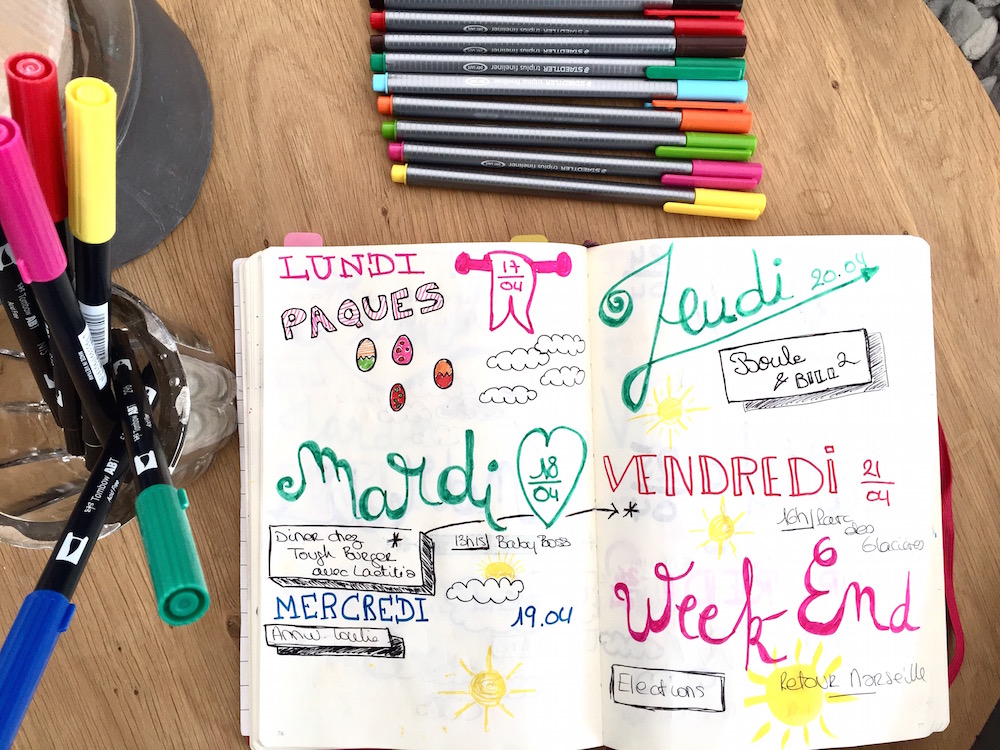 STAEDTLER triplus fineliner
STAEDTLER triplus fineliner
STAEDTLER triplus fineliner
STAEDTLER triplus fineliner
STAEDTLER triplus fineliner
STAEDTLER triplus fineliner
STAEDTLER triplus fineliner
STAEDTLER triplus fineliner
Tombow ABT
Tombow ABT
LUNDI
17
04
PAQUES
Mardi
18
04
Diner chez *
Tough Burger
avec Laëtitia
13h15/ Baby Boss
MERCREDI
19.04
Jeudi
20.04
Boule
& Bill 2
VENDREDI
21
04
*
16h/Parc
des
Glacières
Week End
Elections
Retour Marseille